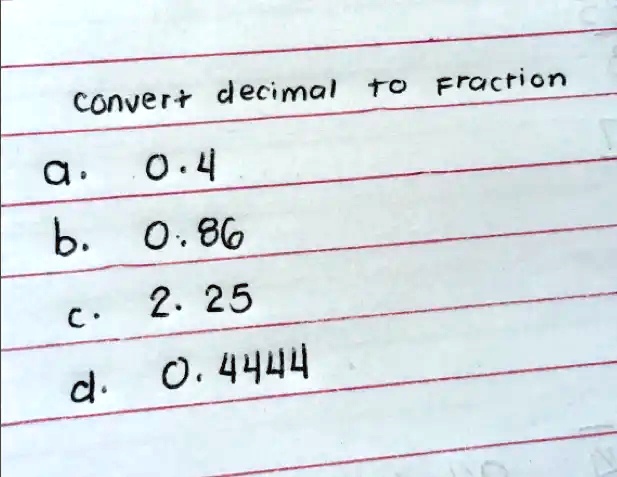 convert decimal to Fraction
a. 0.4
b. 0.86
c. 2.25
d. 0.4444